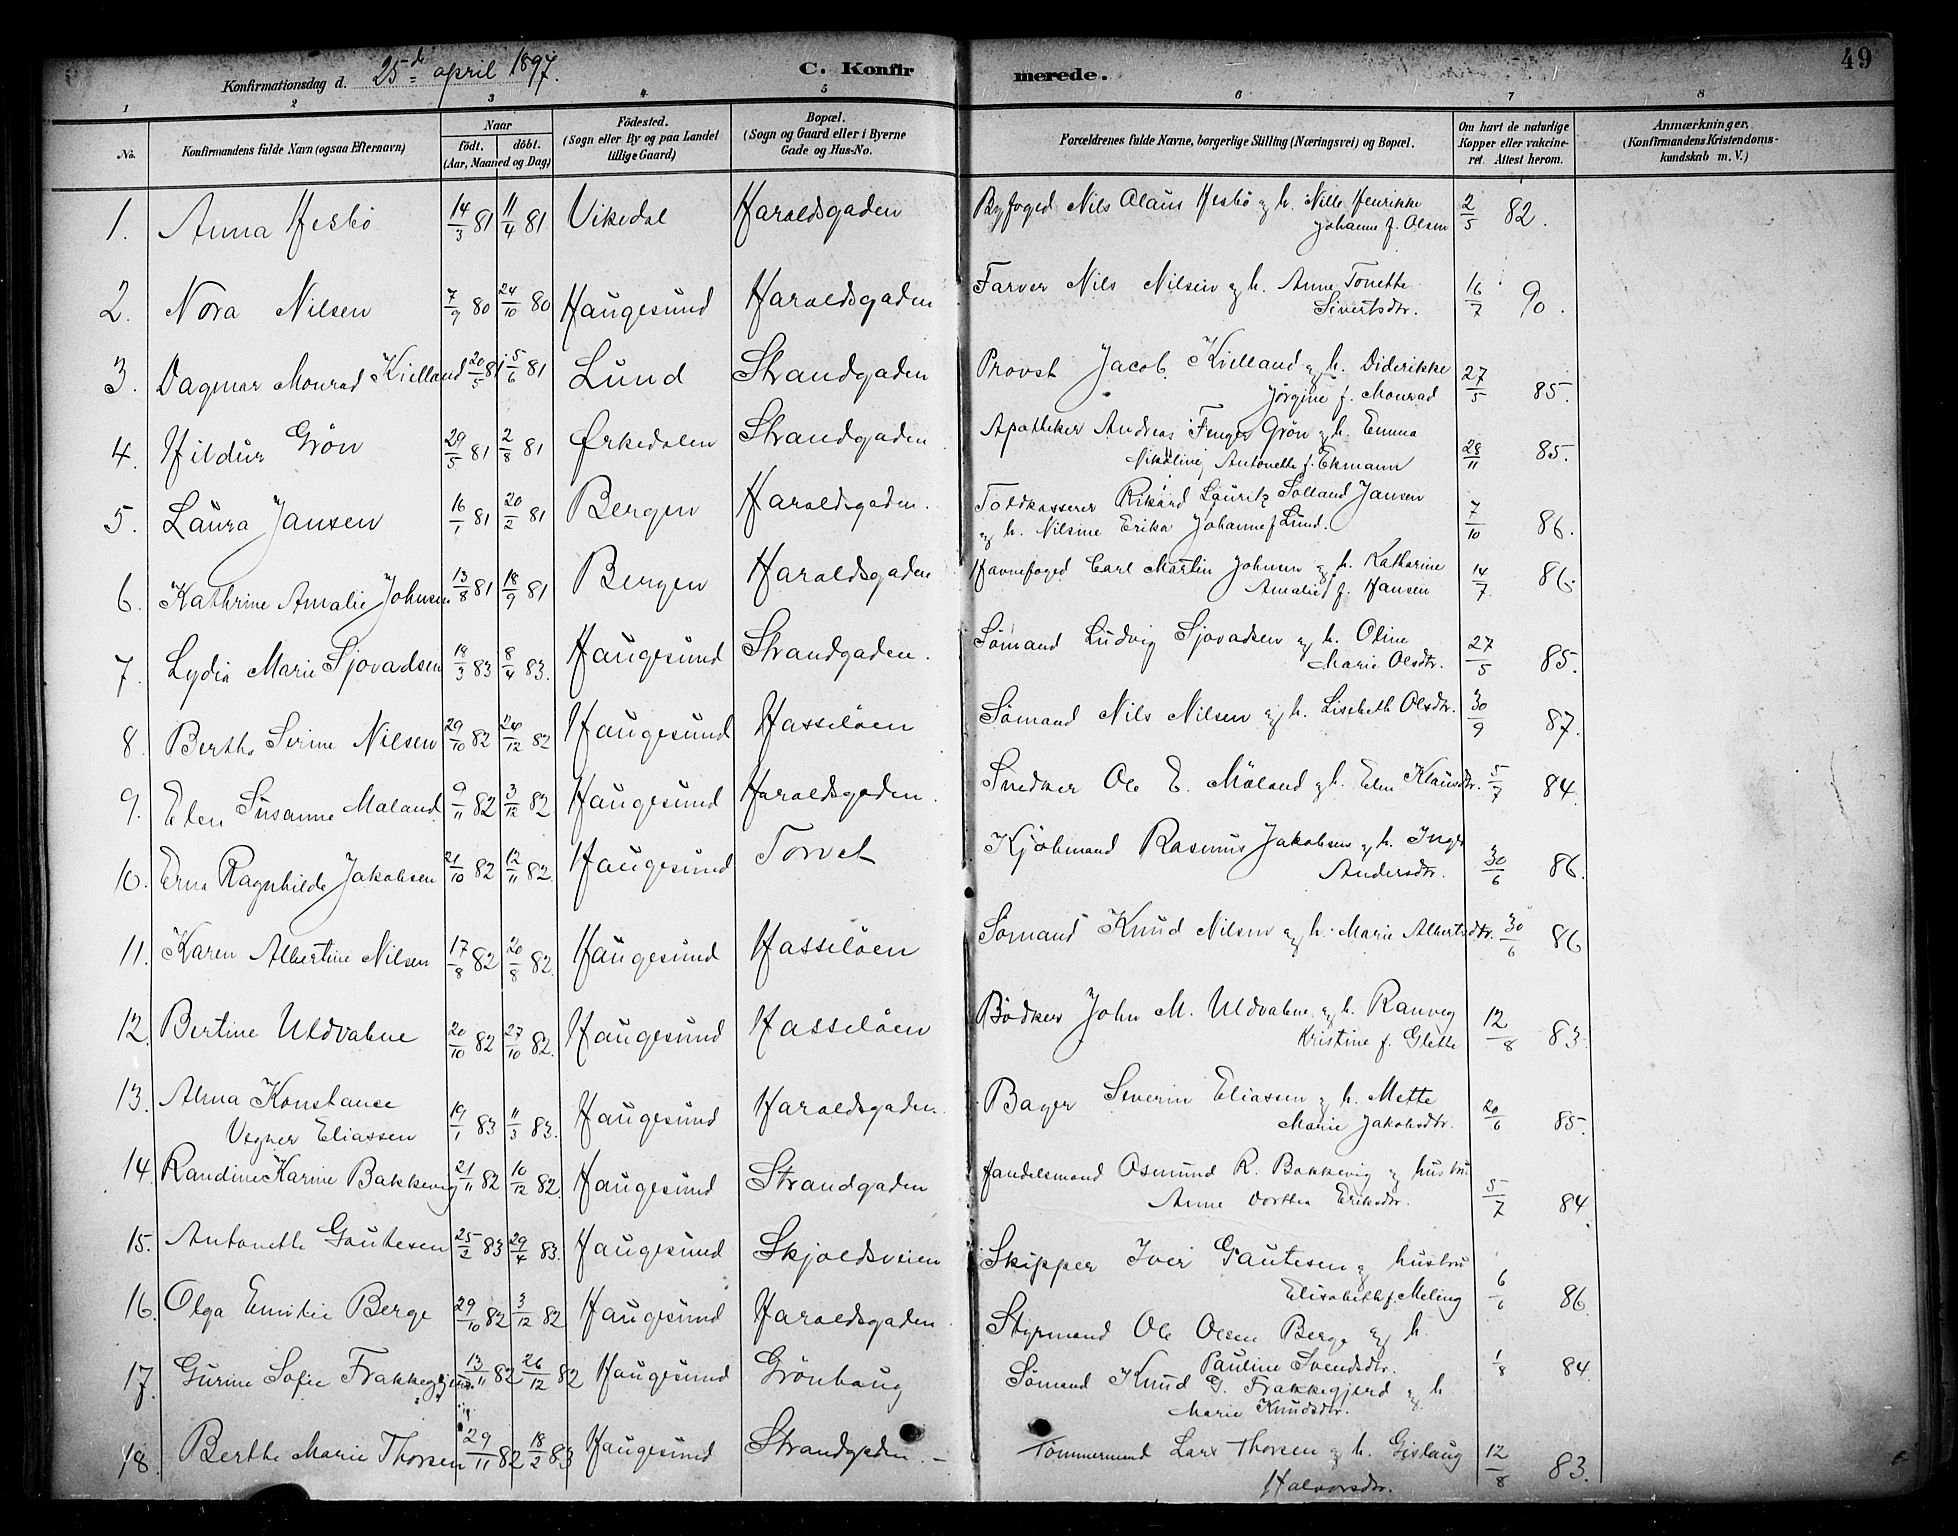 49
Konfirmationsdag d. 25de april 1897.
C. Konfirmerede.
1 2 3 4 5 6 7 8
No. Konfirmandens fulde Navn (ogsaa Efternavn) Naar født. døbt. (Aar, Maaned og Dag) Fødested. (Sogn eller By og paa Landet tillige Gaard) Bopæl. (Sogn og Gaard eller i Byerne Gade og Hus-No. Forældrenes fulde Navne, borgerlige Stilling (Næringsvei) og Bopæl. Om havt de naturlige Kopper eller vakcineret. Attest herom. Anmærkninger. (Konfirmandens Kristendomskundskab m. V.)
1. Anna Hesbø 14/3 81 11/4 81 Vikedal Haraldsgaden Byfoged Nils Olaus Hesbø og h. Nille Henrikke 2/5 82.
Johanne f. Olsen
2. Nora Nilsen 7/9 80 24/10 80 Haugesund Haraldsgaden Farver Nils Nilsen og h. Anne Tonette 16/7 90.
Sivertsdtr.
3. Dagmar Monrad Kielland 20/5 81 5/6 81 Lund Strandgaden Provst Jacob Kielland og h. Diderikke 27/5 85.
Jörgine f. Monrad
4. Hildur Grön 29/5 81 2/8 81 Ørkedalen Strandgaden Apotheker Andreas Fenger Grön og h. Emma 28/11 85.
Nikoline Antonette f. Ekmann
5. Laura Jansen 16/1 81 20/2 81 Bergen Haraldsgaden. Toldkasserer Rikard Lauritz Solland Jansen
og h. Nilsine Erika Johanne f Lund. 7/10 86.
6. Kathrine Amalie Johnsen 13/8 81 18/9 81 Bergen Haraldsgaden Havnefoged Carl Martin Johnsen og h. Katharine 14/7. 86.
Amalie f. Hansen
7. Lydia Marie Sjovadsen 18/3 83 8/4 83. Haugesund Strandgaden. Sömand Ludvig Sjovadsen og h. Oline 27/5 85.
Marie Olsdtr.
8. Berthe Serine Nilsen 29/10 82 24/12 82 Haugesund Hasseløen Sömand Nils Nilsen og h. Lisebeth Olsdtr. 30/9 87.
9. Elen Susanne Maland 9/11 82 3/12 82. Haugesund Haraldsgaden. Snedker Ole E. Möland og h. Elen Klausdtr. 5/7 84.
10. Erna Ragnhilde Jakobsen 21/10 82 12/11 82. Haugesund Torvet Kjöbmand Rasmus Jakobsen og h. Inger 30/6 86.
Andersdtr.
11. Karen Albertine Nilsen 17/8 82 20/8 82. Haugesund Hasseløen Sömand Knud Nilsen og h. Marie Albertsdtr. 30/6 86
12. Bertine Uldvahne 20/10 82 27/10 82. Haugesund Hasseløen Bödker John M. Uldvahne og h. Ranveig 12/8 83.
Kristine f. Glette
13. Alma Konstance 19/1 83 11/3 83. Haugesund Haraldsgaden. Bager Severin Eliassen og h. Mette 20/6 85.
Vegner Eliassen Marie Jakobsdtr.
14. Randine Karine Bakkevig 21/11 82 10/12 82. Haugesund Strandgaden Handelsmand Osmund R. Bakkevig og hustru 5/7 84.
Anne Dorthea Eriksdtr.
15. Antonette Gautesen 25/2 83 29/4 83. Haugesund Skjoldsveien Skipper Iver Gautesen og hustru 6/6 86.
Elisabeth f. Meling
16. Olga Emilie Berge 29/10 82 3/12 82 Haugesund Haraldsgaden Styrmand Ole Olsen Berge og h.
Pauline Svendsdtr. 1/8 84.
17. Gurine Sofie Frakkegjerd 13/11 82 26/12 82 Haugesund Grönhaug Sömand Knud G. Frakkegjerd og h.
Marie Knudsdtr.
18. Berthe Marie Thorsen 29/11 82 18/2 83 Haugesund Strandgaden. Tömmermand Lars Thorsen og h. Gislaug 12/8 83.
Halvorsdtr.